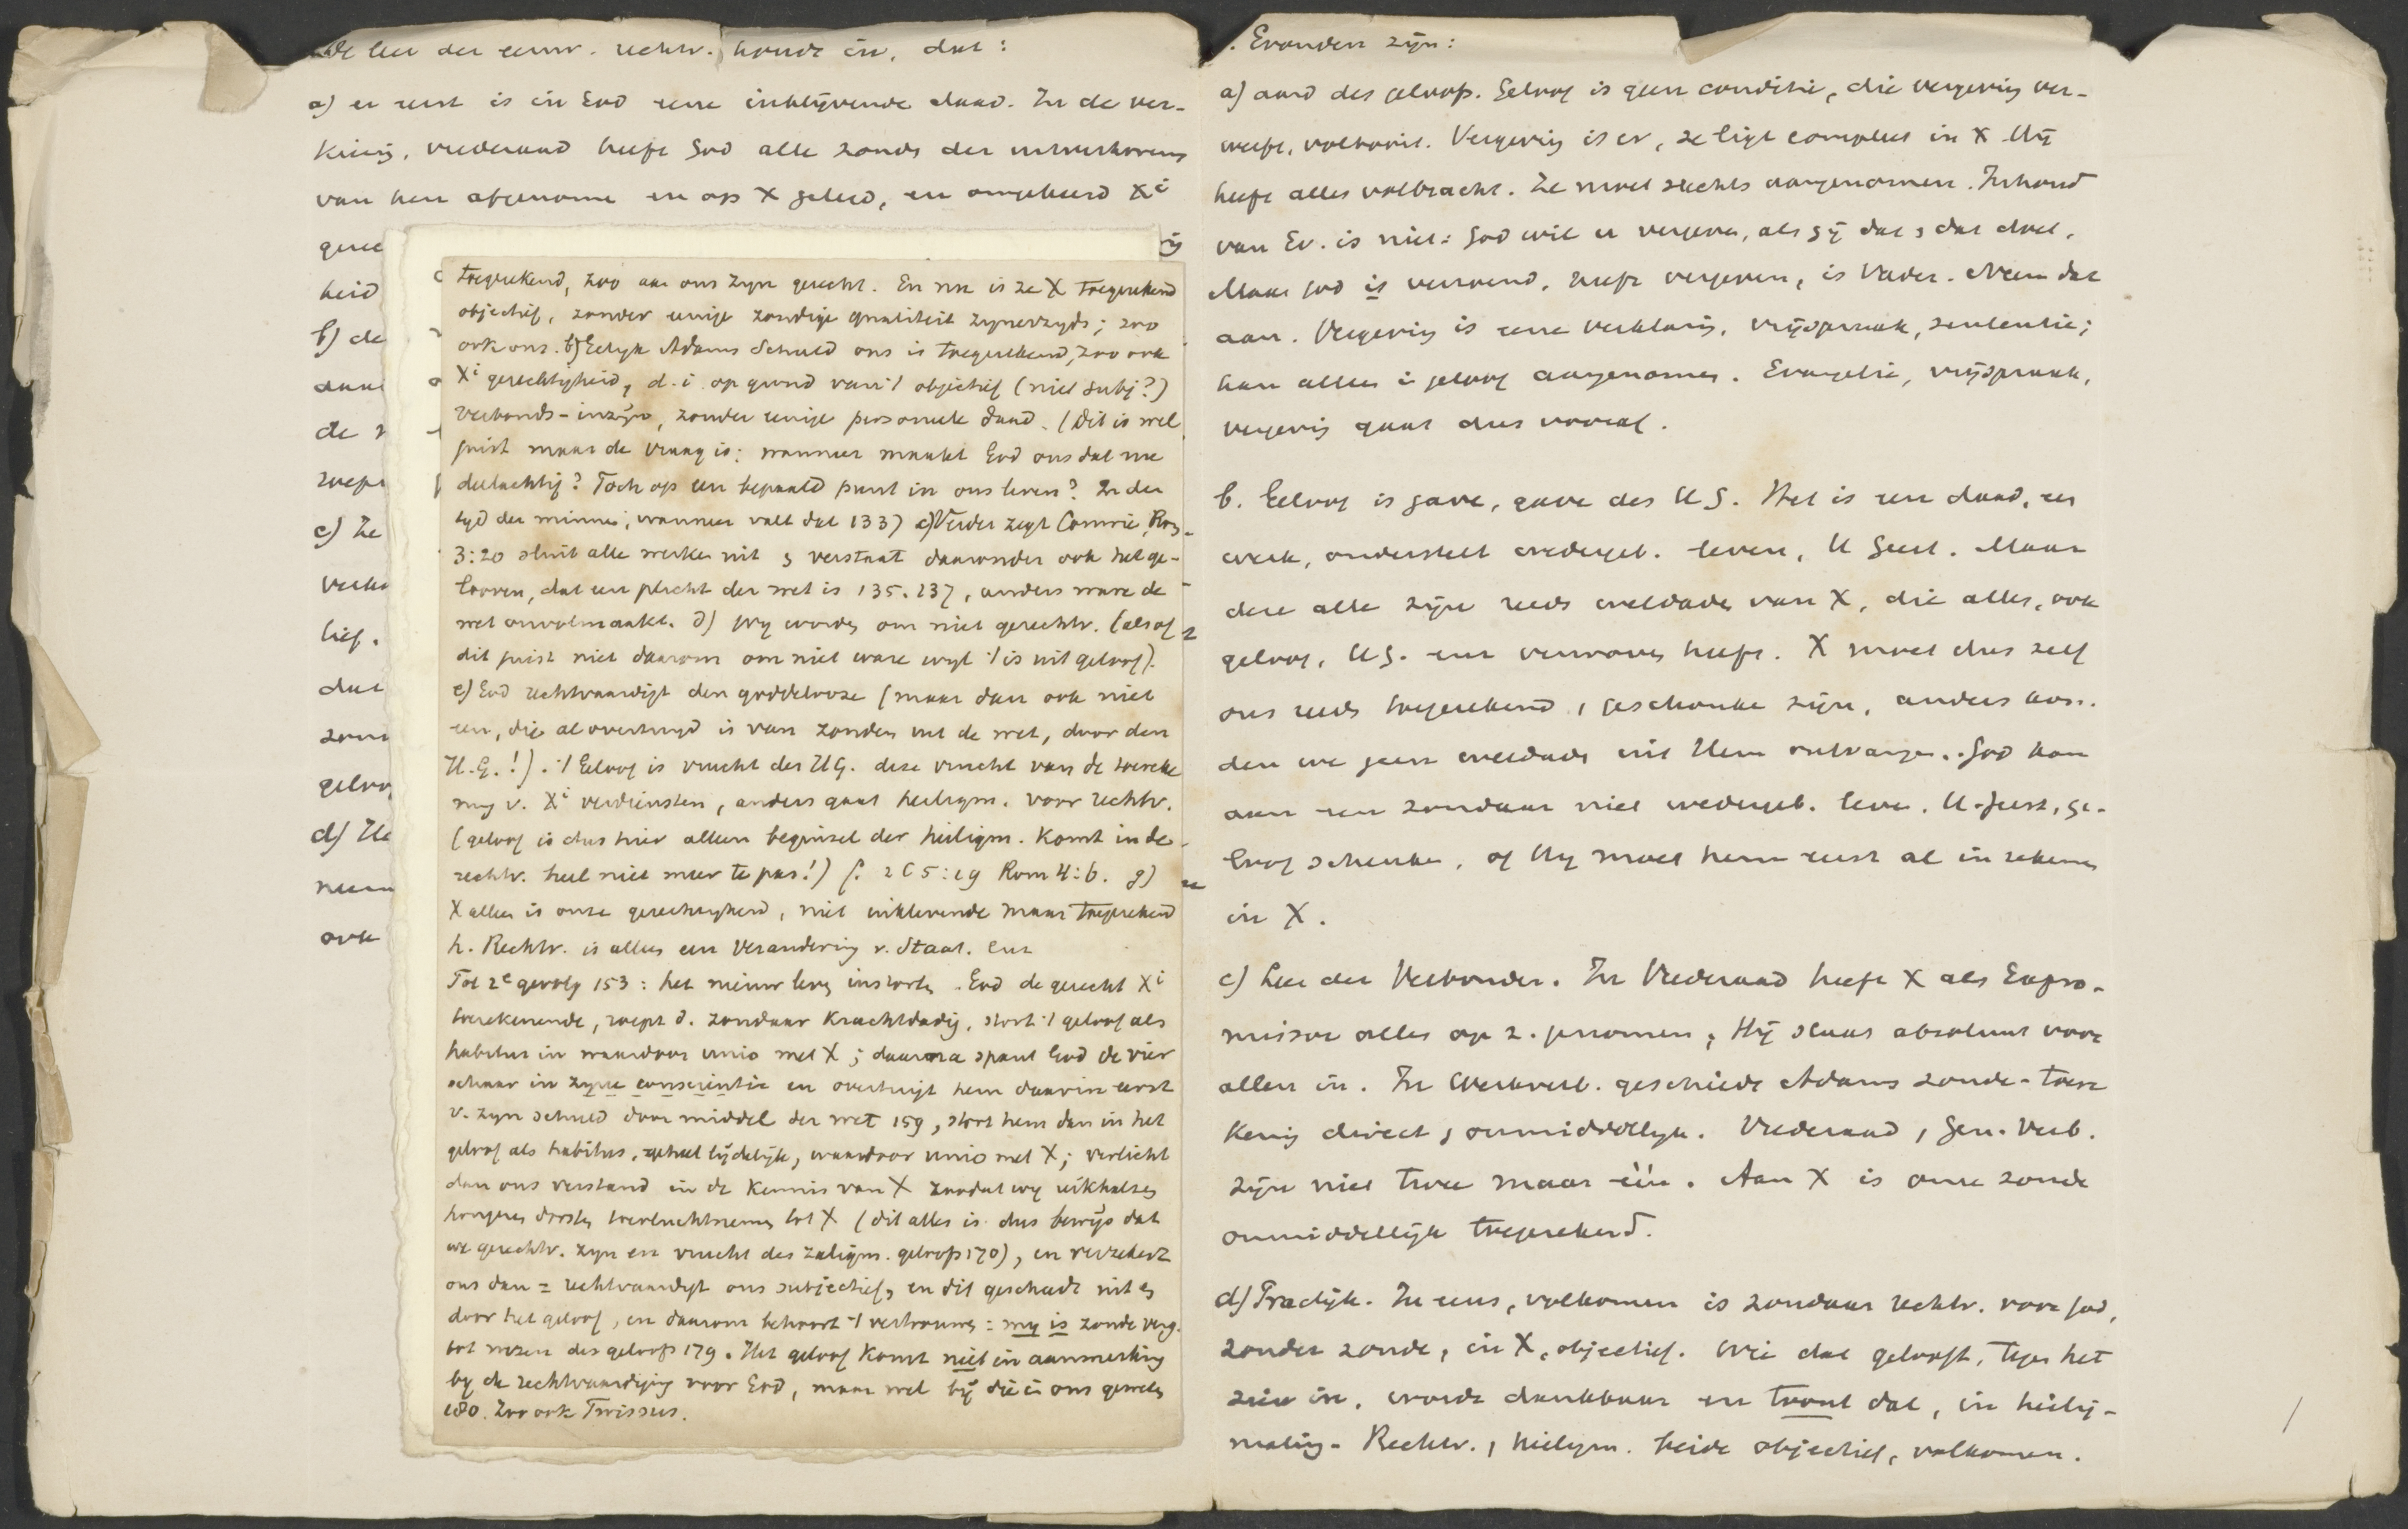 De leer der eeuw. rechtv. houdt in, dat:
a) er eerst is in God eene inblijvende daad. In de ver-
kiezg, vrederaad heeft God alle zonde der uitverkorens
van hen afgenome en op X gelegd, en omgekeerd Xi
gerec
heid
b) de
daar
de
roept
c) Ze
verkl
lief.
dat
zond
geloof
d) He
neem
ook
toegerekend, zoo aan ons zyn gerecht. En nu is ze X toegerekend
objectief, zonder eenige zondige qualiteit zynerzyds; zoo
ook ons. b) Gelyk Adams Schuld ons is toegerekend, zoo ook
Xi gerechtigheid, d.i. op grond van 't objectief (niet subj?)
Verbonds-inzyn, zonder eenige persoonele daad. (Dit is wel
juist maar de vraag is: wanneer maakt God ons dat me
deelachtig? Toch op een bepaald punt in ons leven? In den
tyd der minne, wanneer valt dat 133) c) Verder zegt Comrie, Rom
3:20 sluit alle werken uit & verstaat daaronder ook het ge-
looven, dat een plicht der wet is 135. 137, anders ware de
wet onvolmaakt. d) Wy worden om niet gerechtv. (alsof
dit juist niet daarom om niet ware wyl 't is uit geloof).
e) God rechtvaardigt den goddelooze (maar dan ook niet
een, die al overtuigd is van zonden uit de wet, door den
H.G.!). 't Geloof is vrucht des HG. deze vrucht van de toereke
ning v. Xi verdiensten, anders gaat heiligm. voor rechtv.
(geloof is dus hier alleen beginsel der heiligm. Komt in de
rechtv. heel niet meer te pas!) f. 2 C 5:19 Rom 4:6. g)
X alleen is onze gerechtigheid, niet inklevende maar toegerekend
h. Rechtv. is alleen een Verandering v. Staat. enz
Tot 2e gevolg 153: het nieuw leven instorten. God de gerecht Xi
toerekenende, roept d. zondaar krachtdadig, stort 't geloof als
habitus in waardoor unio met X; daarna spant God de vier
schaar in zyne conscientie en overtuigt hem daarin eerst
v. zyn schuld door middel der wet 159, stort hem dan in het
geloof als habitus, geheel lijdelijk, waardoor unio met X; verlicht
dan ons verstand in de kennis van X zoodat wy uikhalzen
hongeren dorsten toevluchtnemen tot X (dit alles is dus bewijs dat
we gerechtv. zyn en vrucht des zaligm. geloofs 170), en verzekert
ons dan = rechtvaardigt ons subjectief, en dit geschiedt uit en
door het geloof, en daarom behoort 't vertrouwen: my is zonde verg.
tot wezen des geloofs 179. Het geloof komt niet in aanmerking
by de rechtvaardiging voor God, maar wel bij die in ons geweten
180. Zoo ook Twissus.
. Gronden zijn:
a) aard des geloofs. Geloof is geen conditie, die vergeving ver-
werft, voltooit. Vergeving is er, ze ligt compleet in X Hij
heeft alles volbracht. Ze moet slechts aangenomen. Inhoud
van Ev. is niet: God wil u vergeven, als gij dat & dat doet.
Maar God is verzoend, heeft vergeven, is Vader. Neem dat
aan. Vergeving is eene verklaring, vrijspraak, sententie;
kan alleen in geloof aangenomen. Evangelie, vrijspraak,
vergevig gaat dus vooraf.
b. Geloof is gave, gave des H G. Het is een daad, een
werk, onderstelt wedergeb. leven, H Geest. Maar
deze alle zijn reeds weldaden van X, die alles, ook
geloof, HG. enz verworven heeft. X moet dus zelf
ons reeds toegerekend & geschonken zijn, anders kon-
den we geen weldaden uit Hem ontvangen. God kan
aan een zondaar niet wedergeb. leve. H. Geest, ge-
loof schenken, of Hy moet hem eerst al in rekenen
in X.
c) Leer der Verbonden. In Vrederaad heeft X als Expro-
missor alles op z. genomen, Hij staat absoluut voor
allen in. In Werkverb. geschiedt Adams zonde-toere
kenig direct, onmiddellyk. Vrederaad & Gen. Verb.
zijn niet twee maar één. Aan X is onze zonde
onmiddellijk toegerekend.
d) Practijk. In eens, volkomen is zondaar rechtv. voor God,
zonder zonde, in X, objectief. Wie dat gelooft, tegen het
zien in, wordt dankbaar en toont dat, in heilig-
making. Rechtv. & heiligm. beide objectief, volkomen.